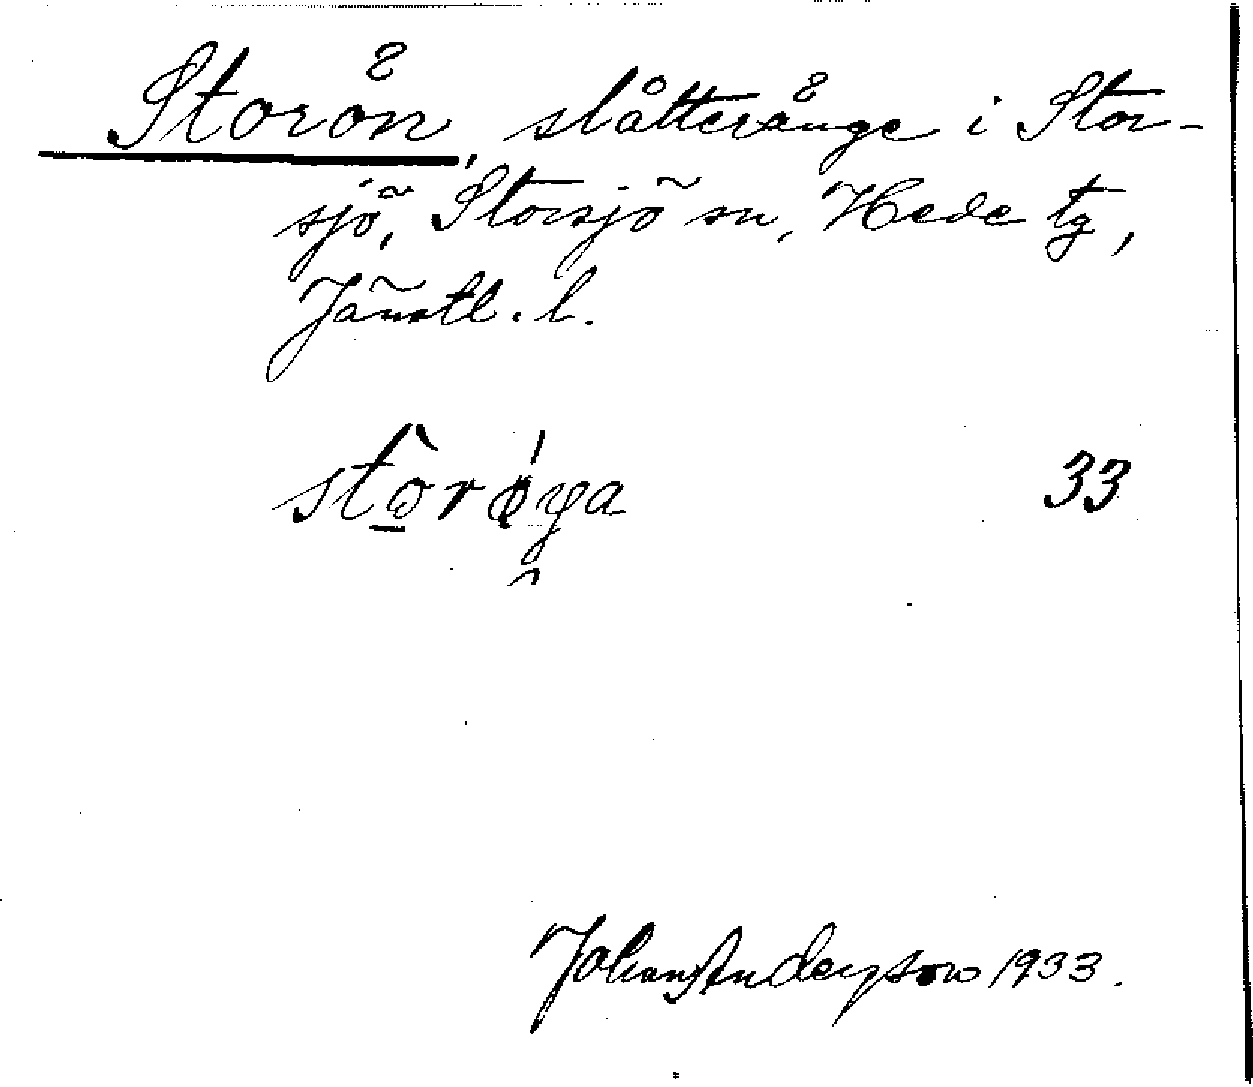 Storån, slåtterånge i Stor-
sjö, Storsjö sn, Hede tg,
Jämtl. l.
stòrø̀ya 33
Johan Andersson 1933.